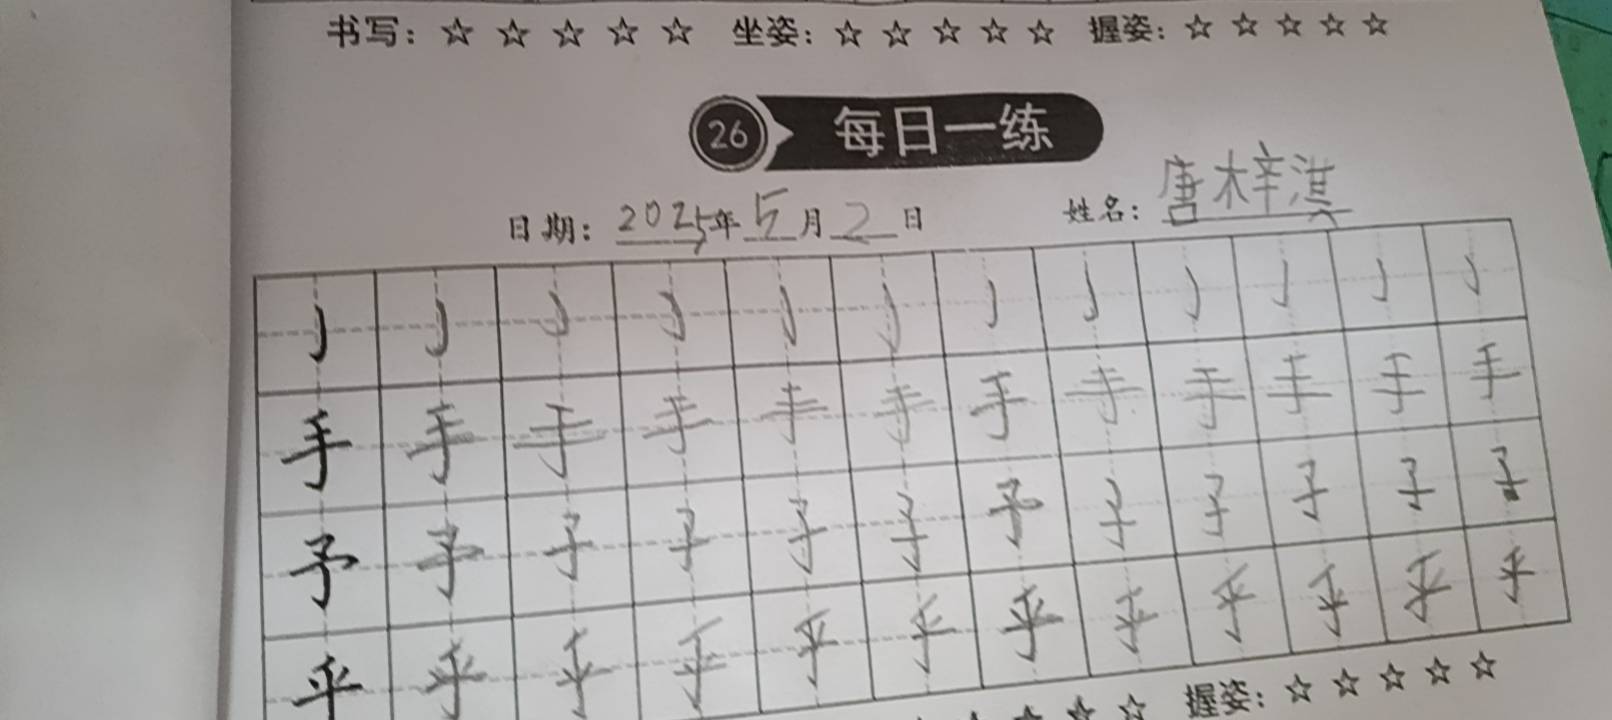 书写：☆ ☆ ☆ ☆ ☆ 坐姿：☆ ☆ ☆ ☆ ☆ 握姿：☆ ☆ ☆ ☆ ☆
26 每日一练
日期：2025年5月2日 姓名：唐梓淇
亅 亅 亅 亅 亅 亅 亅 亅 亅 亅 亅 亅
手 手 手 手 手 手 手 手 手 手 手 手
予 予 子 子 子 子 予 子 子 子 子 子
乎 乎 乎 乎 乎 乎 乎 乎 乎 乎 乎 乎
☆ ☆ ☆ ☆ 握姿：☆ ☆ ☆ ☆ ☆